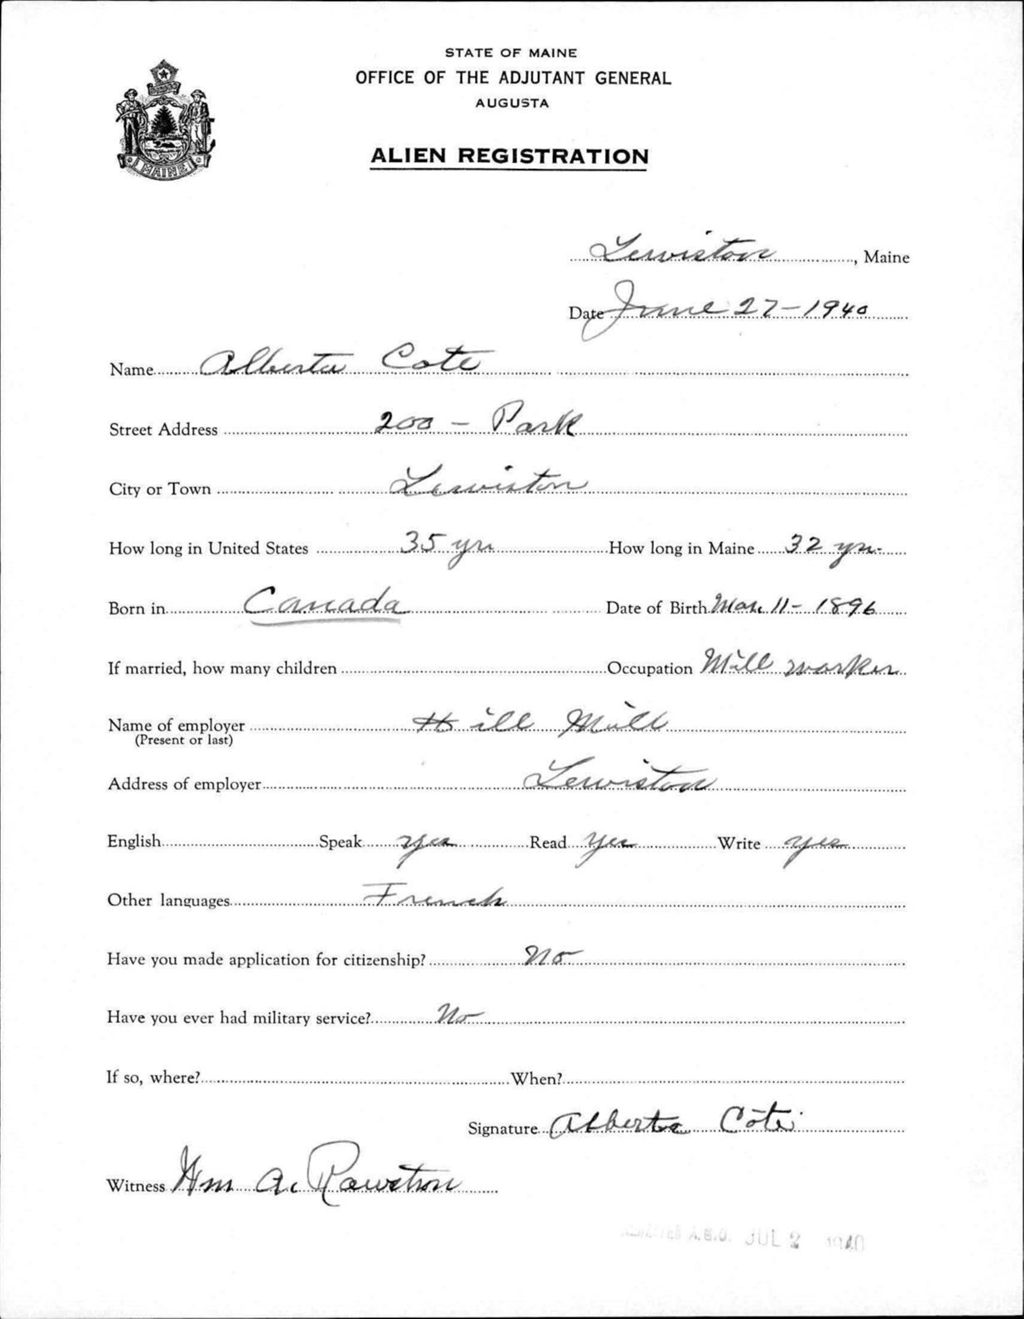 STATE OF MAINE
OFFICE OF THE ADJUTANT GENERAL
AUGUSTA
ALIEN REGISTRATION
MAINE
Lewiston, Maine
Date June 27-1940
Name Alberta Cote
Street Address 200 - Park
City or Town Lewiston
How long in United States 35 yrs How long in Maine 32 yrs.
Born in Canada Date of Birth Mar. 11- 1896
If married, how many children Occupation Mill worker
Name of employer Hill Mill
(Present or last)
Address of employer Lewiston
English Speak yes Read Yes Write yes
Other languages French
Have you made application for citizenship? No
Have you ever had military service? No
If so, where? When?
Signature Alberta Côté
Witness Wm A. Rowston
A.G.O. JUL 2 1940